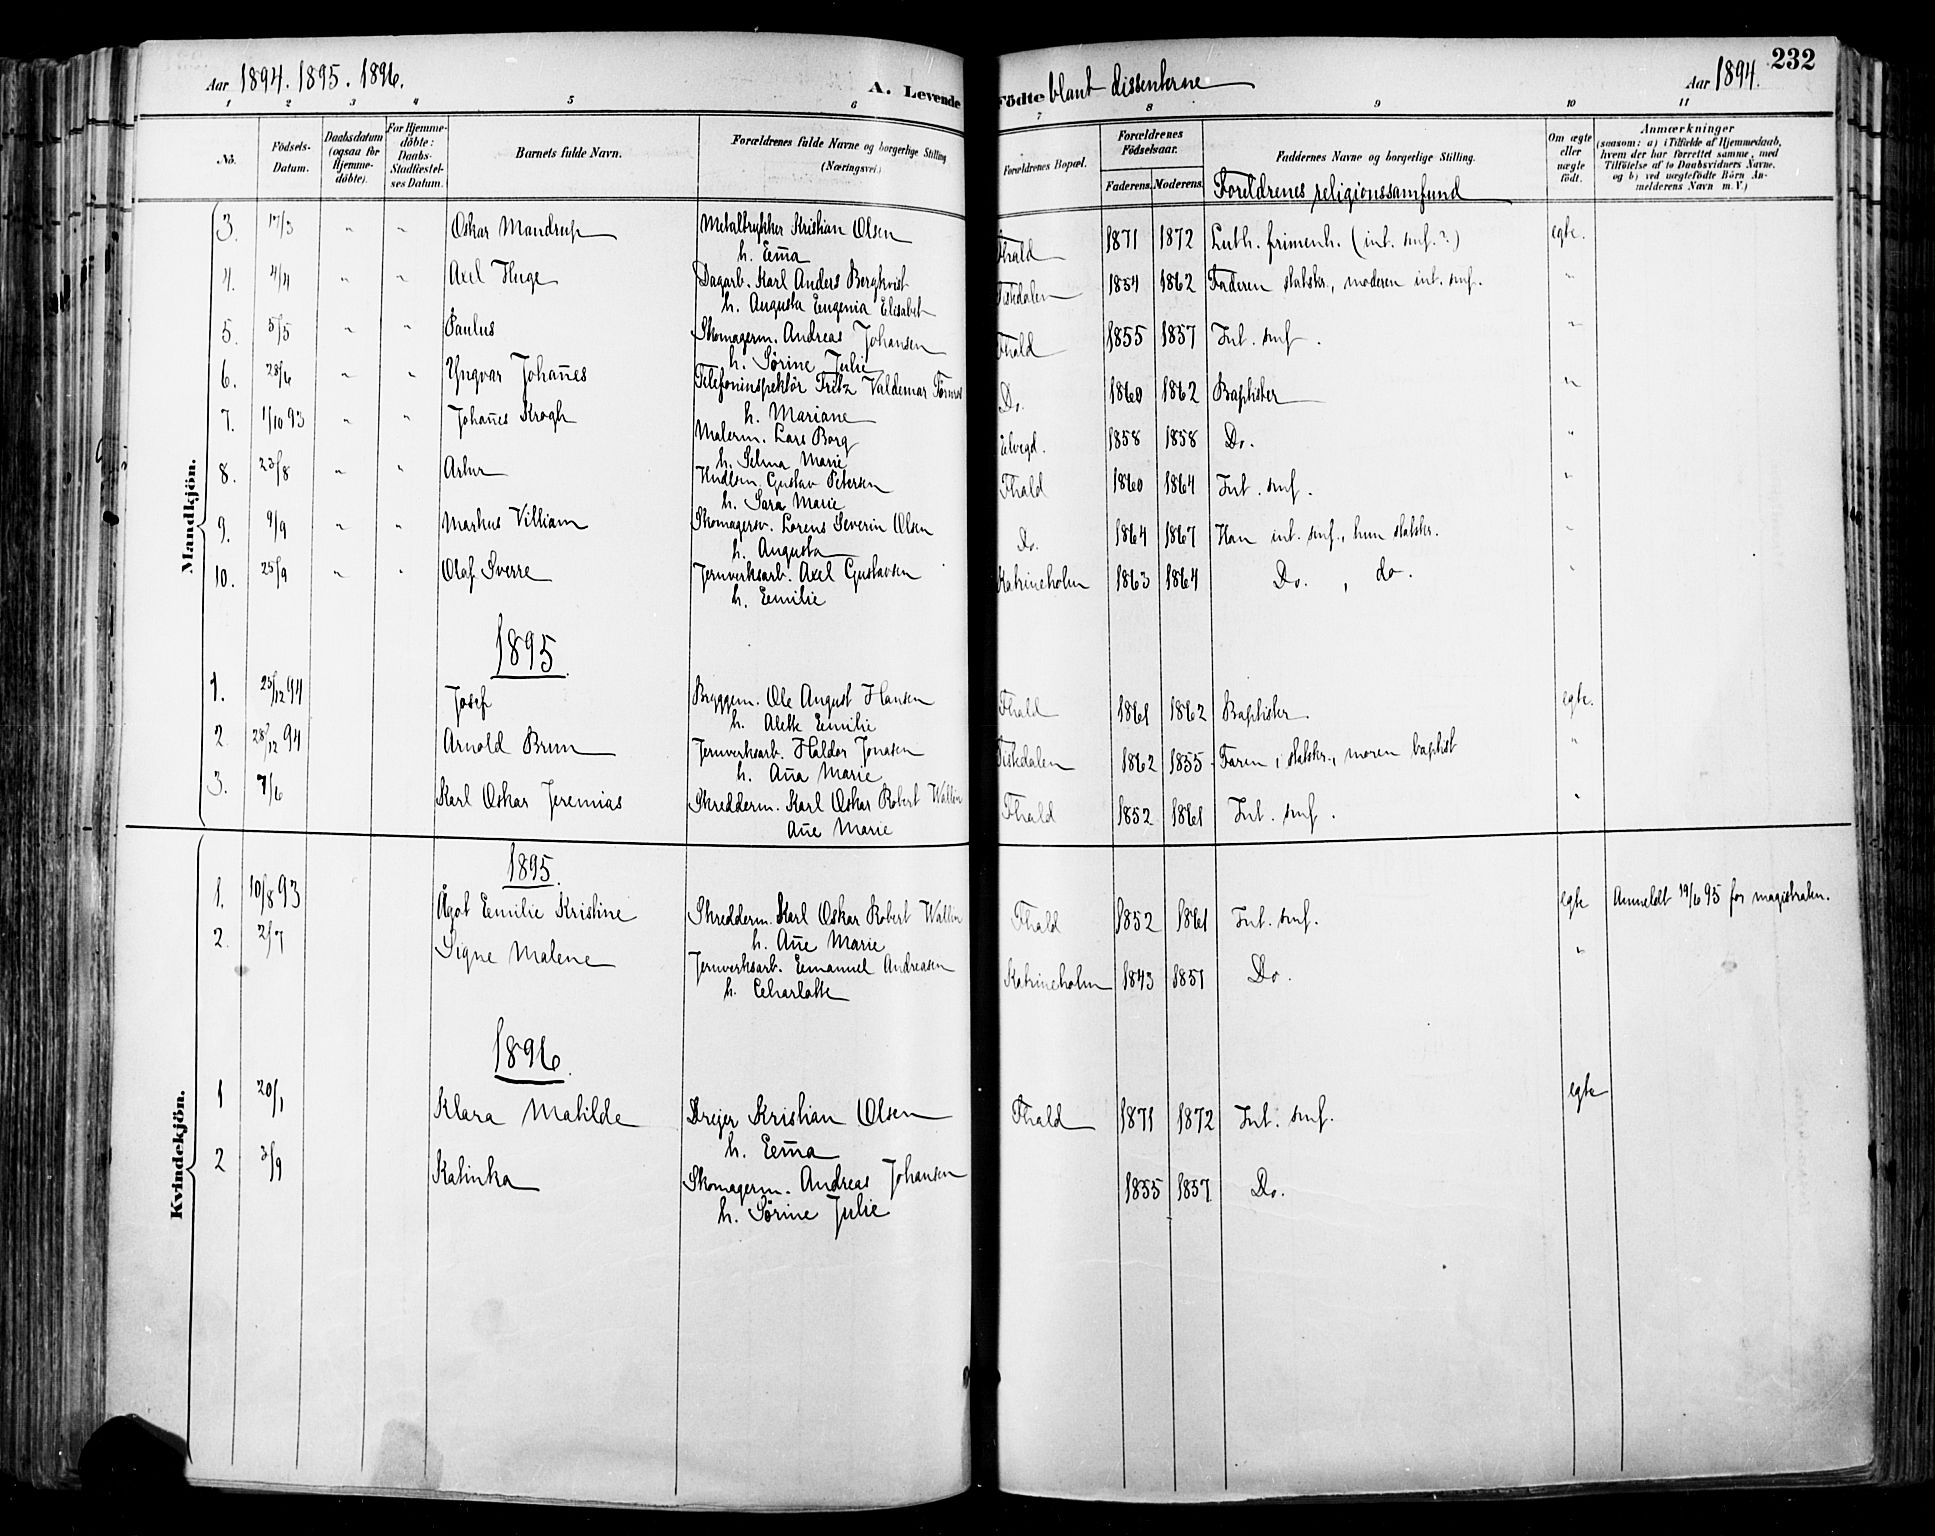 Aar 1894. 1895. 1896. A. Levende
Födte blant dissenterne Aar 1894. 232
1 2 3 4 5 6 7 8 9 10 11
No. Födsels-Datum. Daabsdatum (ogsaa for Hjemme-döbte). For Hjemme-döbte: Daabs-Stadfæstel-ses Datum. Barnets fulde Navn. Forældrenes fulde Navne og borgerlige Stilling (Næringsvei)
Forældrenes Bopæl. Forældrenes Födselsaar. Faderens. Moderens. Faddernes Navne og borgerlige Stilling. Om ægte eller uægte födt. Anmærkninger (saasom: a) i Tilfælde af Hjemmedaab, hvem der har forrettet samme, med Tilföielse af to Daabsvidners Navne, og b) ved uægtefödte Börn An-melderens Navn m. V.)
Foreldrenes religionssamfund
Mandkjön.
3. 17/3 " " Oskar Mandrup Metaltrykker Kristian Olsen 
h. Emma
Fhald 1871 1872 Luth. frimenh. (int. smf.?) egte.
4. 4/4 " " Axel Huge Dagarb. Karl Anders Bergkvist
h. Augusta Eugenia Elisabet
Tistedalen 1854 1862 Faderen statskr., moderen int. smf. "
5. 5/5 " " Paulus Skomagerm. Andreas Johansen
h. Sörine Julie
Fhald 1855 1857 Int. smf. "
6. 28/6 " " Yngvar Johan̄es Telefoninspektör Fritz Valdemar
h. Mariane
Do. 1860 1862 Baptister "
7. 1/10 93 " Johan̄es Krogh Malerm. Lars Borg
h. Selma Marie
1858 1858 Do. "
8. 23/8 " " Artur Hndlsm. Gustav Petersen
h. Sara Marie
Fhald 1860 1864 Int. smf. "
9. 9/9 " " Markus Villiam Skomagersv. Lorens Severin Olsen
h. Augusta
Do. 1864 1867 Han int. smf., hun statskr. "
10. 25/9 " " Olaf Sverre Jernverksarb. Axel Gustavsen
h. Emilie
Katrineholm 1863 1864 Do. , do. "
1895
1. 25/12 94 Josef Bryggem. Ole August Hansen
h. Alette Emilie
Fhald 1861 1862 Baptister egte.
2. 28/12 94 Arnold Brun Jernverksarb. Haldor Jonasen
h. An̄a Marie
Tistedalen 1862 1855 Faren i statskr., moren baptist "
3. 7/6 Karl Oskar Jeremias Skredderm. Karl Oskar Robert Wallin
An̄e Marie
Fhald 1852 1861 Int. smf. "
Kvindekjön.
1895.
1. 10/8 93 Ågot Emilie Kristine Skredderm. Karl Oskar Robert Wallin
h. An̄e Marie
Fhald 1852 1861 Int. smf. egte Anmeldt 19/6 95 for magistraten.
2. 2/7 Signe Malene Jernverksarb. Emanuel Andreasen
h. Charlotte
Katrineholm 1843 1851 Do. "
1896.
1 20/1 Klara Matilde Drejer Kristian Olsen
h. Em̄a
Fhald 1871 1872 Int. smf. egte
2 3/9 Katinka Skomagerm. Andreas Johansen
h. Sörine Julie
1855 1857 Do.